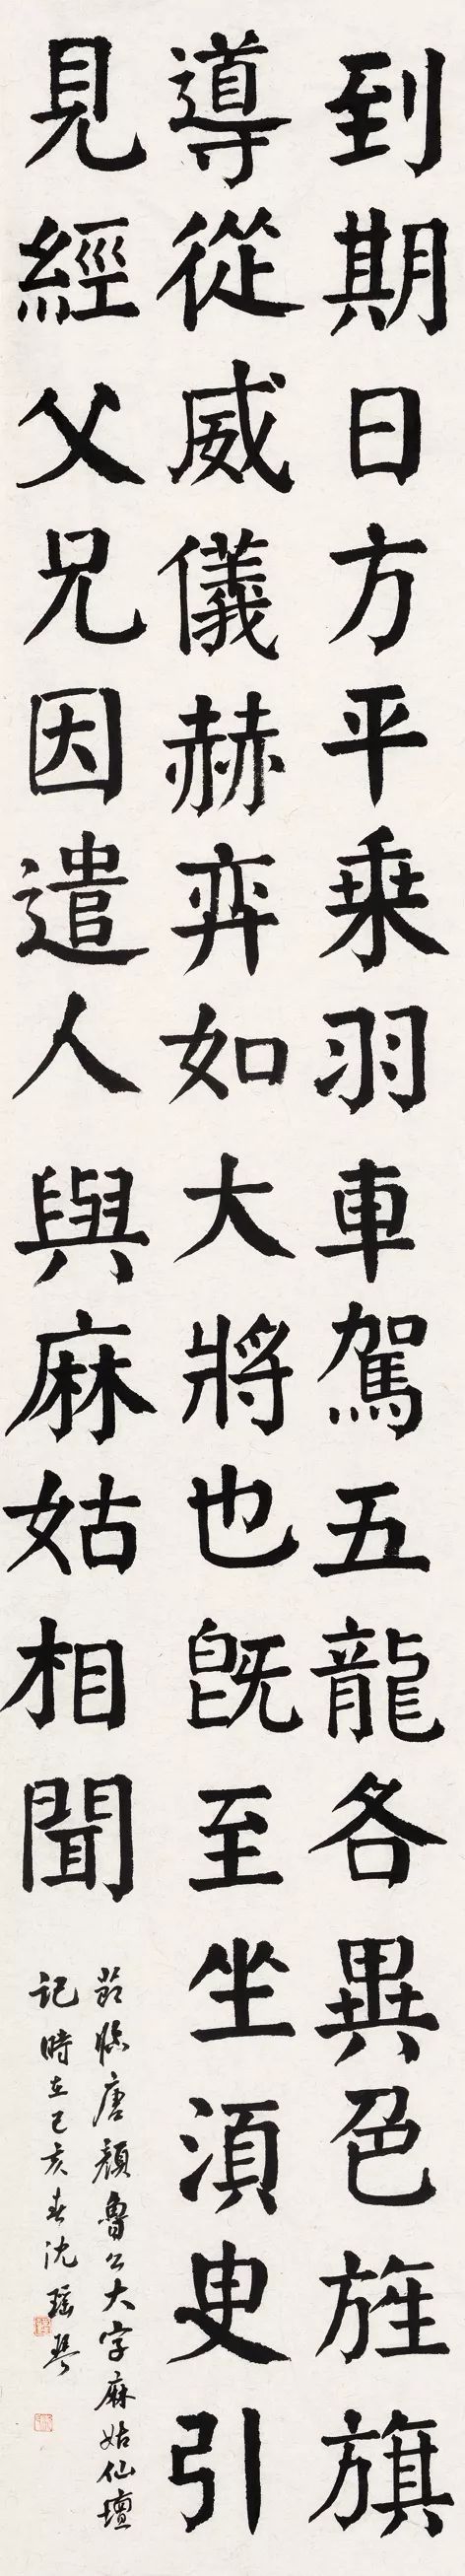 到期日方平乗羽車駕五龍各異色旌旗
導從威儀赫弈如大將也旣至坐須臾引
見經父兄因遣人與麻姑相聞
節臨唐顏魯公大字麻姑仙壇
記時在己亥春沈瑶琴